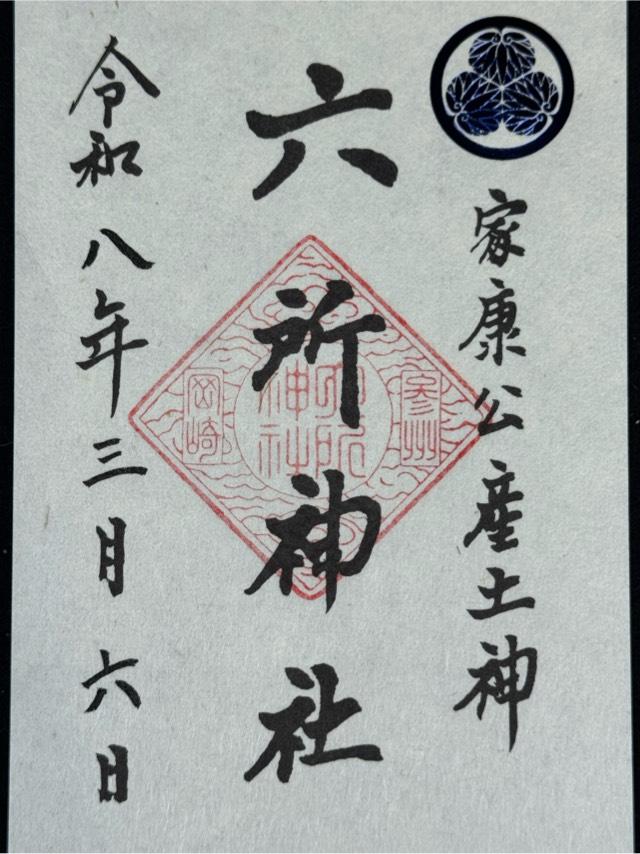 家康公産土神
六所神社
参州
六所
神社
岡崎
令和八年三月六日